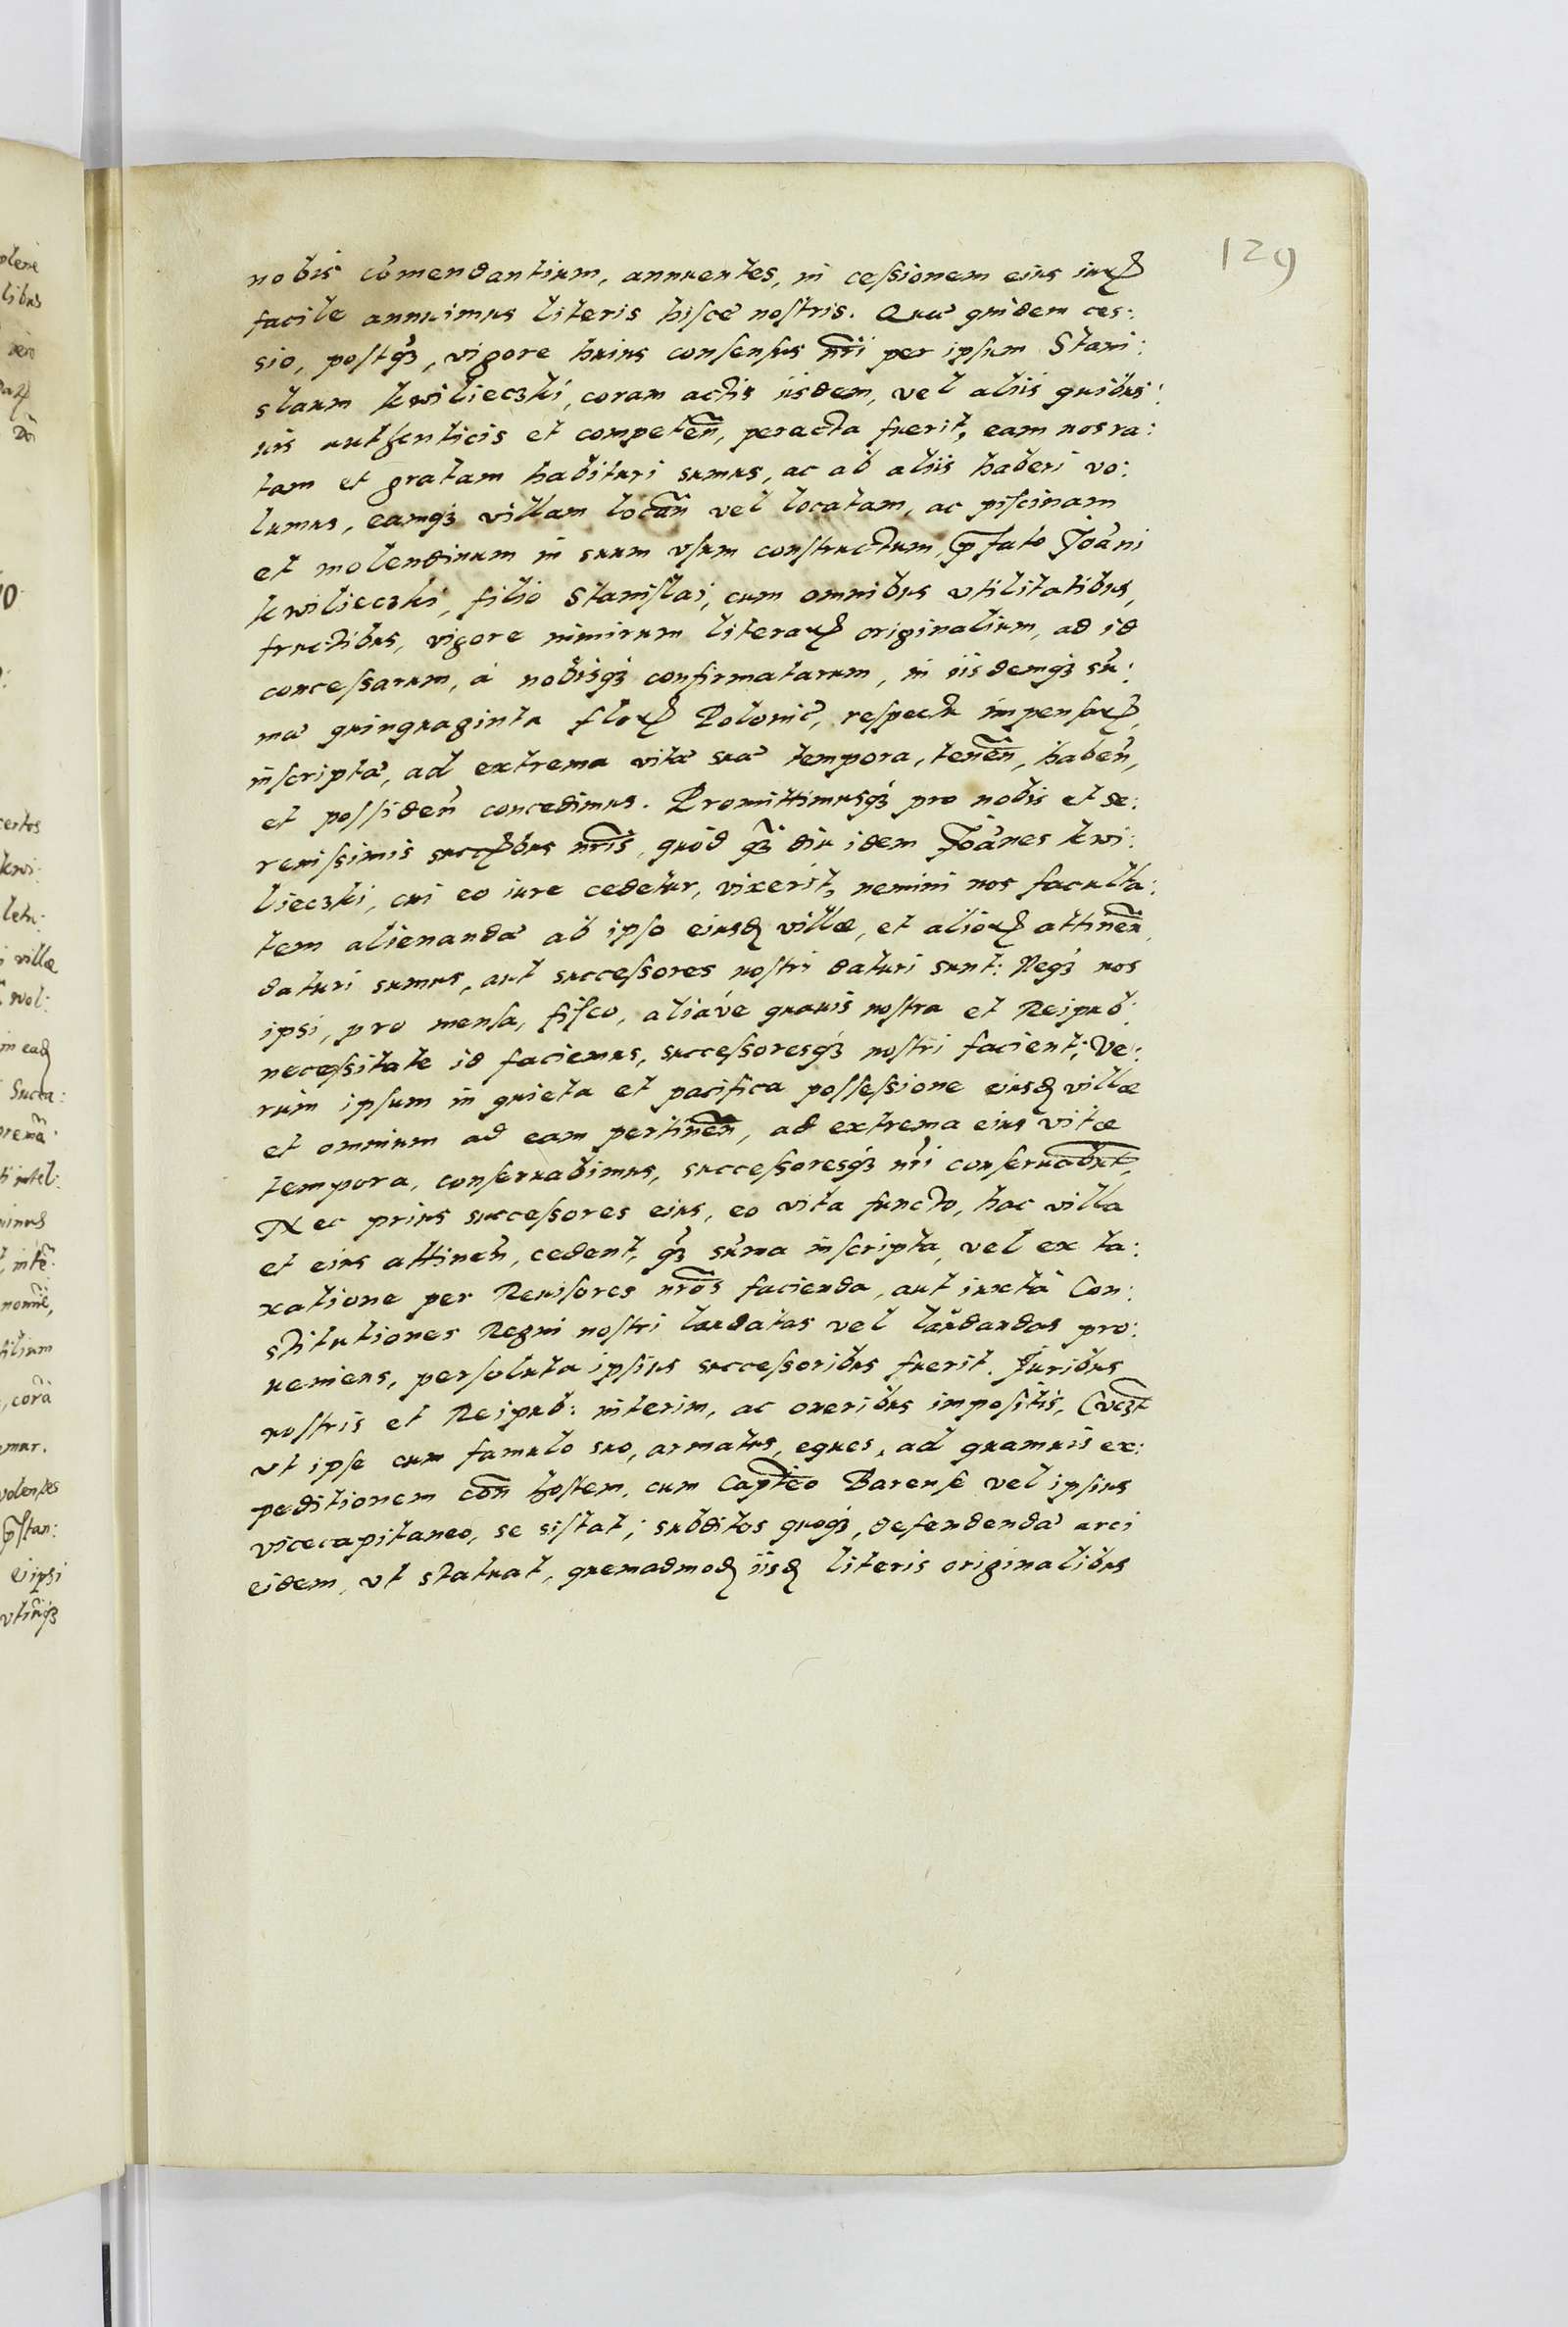 129
nobis com̃endantium, annuentes, in cessionem eius iurꝝ
facile annuimus literis hisce nostris. Quæ quidem ces:
sio, postq̃ꝫ, vigore huius consensus nr̃i per ipsum Stani:
slaum Kwilieczki, coram actis iisdem, vel aliis quibus:
uis authenticis et competen̄, peracta fuerit, eam nos ra:
tam et gratam habituri sumus, ac ab aliis haberi vo:
lumus, eamqꝫ villam locan̄ vel locatam, ac piscinam
et molendinum in suum vsum constructum, p̄fato Joãni
Kwilieczki, filio Stanislai, cum omnibus vtilitatibus,
fructibus, vigore nimirum literaꝝ originalium, ad id
concessarum, à nobisqꝫ confirmatarum, in iisdemqꝫ sũ:
ma quinquaginta floꝝ Polonic̃, respectu impensaꝝ,
inscripta, ad extrema vitæ suæ tempora, tenen̄, haben̄,
et possiden̄ concedimus. Promittimusqꝫ pro nobis et se:
renissimis succꝝbus nr̃is, quòd qꝫ̃ diu idem Joãnes Kwi:
lieczki, cui eo iure cedetur, vixerit, nemini nos faculta:
tem alienandæ ab ipso eiusꝺ villæ, et alioꝝ attinen̄
daturi sumus, aut successores nostri daturi sunt: Neqꝫ nos
ipsi, pro mensa, fisco, aliáve quauis nostra et Reipub:
necessitate id faciemus, successoresqꝫ nostri facient; Ve:
rùm ipsum in quieta et pacifica possessione eiusꝺ villæ
et omnium ad eam pertinen̄, ad extrema eius vitæ
tempora, conseruabimus, successoresqꝫ nr̃i conseruabũt,
Nec prius successores eius, eo vita functo, hac villa
et eius attinen̄, cedent, qꝫ̃ sum̃a inscripta, vel ex ta:
xatione per Reuisores nr̃os facienda, aut iuxta Con:
stitutiones Regni nostri laudatas vel laudandas pro:
ueniens, persoluta ipsius successoribus fuerit. Juribus
nostris et Reipub: interim, ac oneribus impositis,
vt ipse cum famulo suo, armatus, eques, ad quamuis ex:
peditionem con̄ hostem, cum Capteo Barense vel ipsius
vicecapitaneo, se sistat; subditos quoqꝫ, defendendæ arci
eidem, vt statuat, quemadmoꝺ iisꝺ literis originalibus